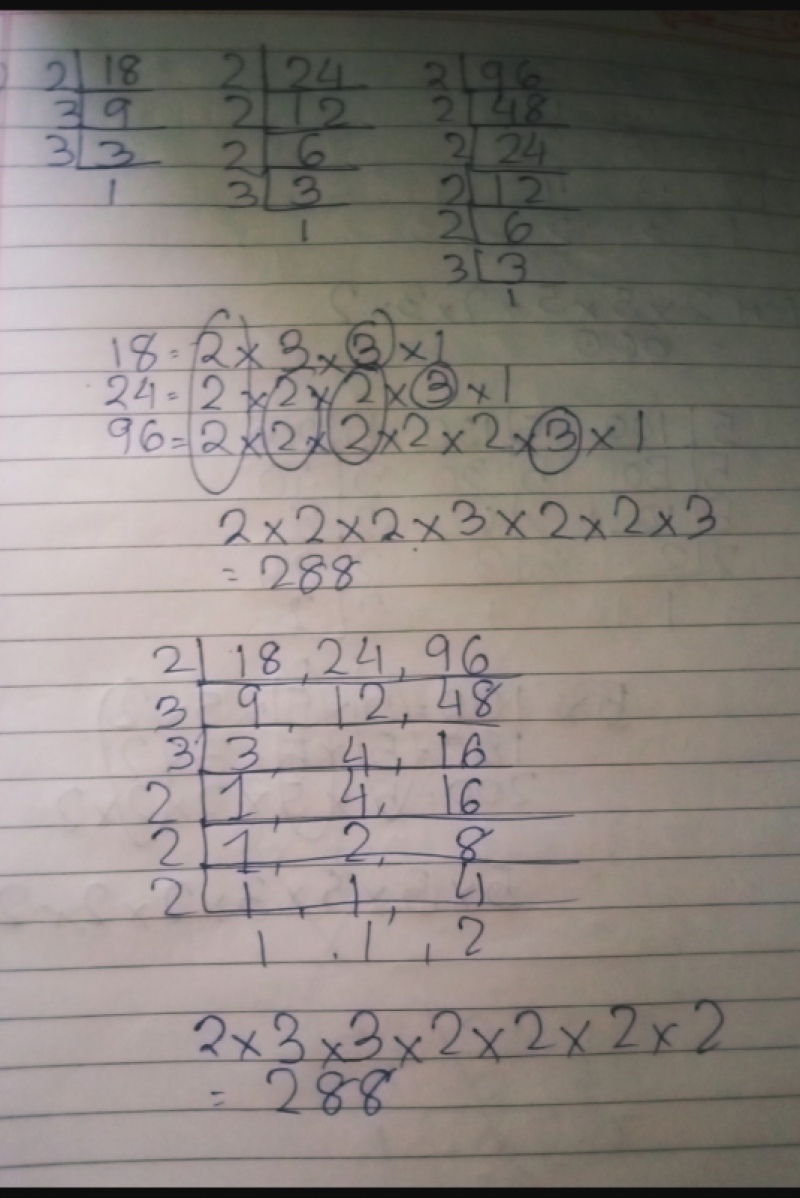 2 | 18
3 | 9
3 | 3
1
2 | 24
2 | 12
2 | 6
3 | 3
1
2 | 96
2 | 48
2 | 24
2 | 12
2 | 6
3 | 3
1
18 = 2 × 3 × 3 × 1
24 = 2 × 2 × 2 × 3 × 1
96 = 2 × 2 × 2 × 2 × 2 × 3 × 1
2 × 2 × 2 × 3 × 2 × 2 × 3
= 288
2 | 18, 24, 96
3 | 9, 12, 48
3 | 3, 4, 16
2 | 1, 4, 16
2 | 1, 2, 8
2 | 1, 1, 4
1, 1, 2
2 × 3 × 3 × 2 × 2 × 2 × 2
= 288